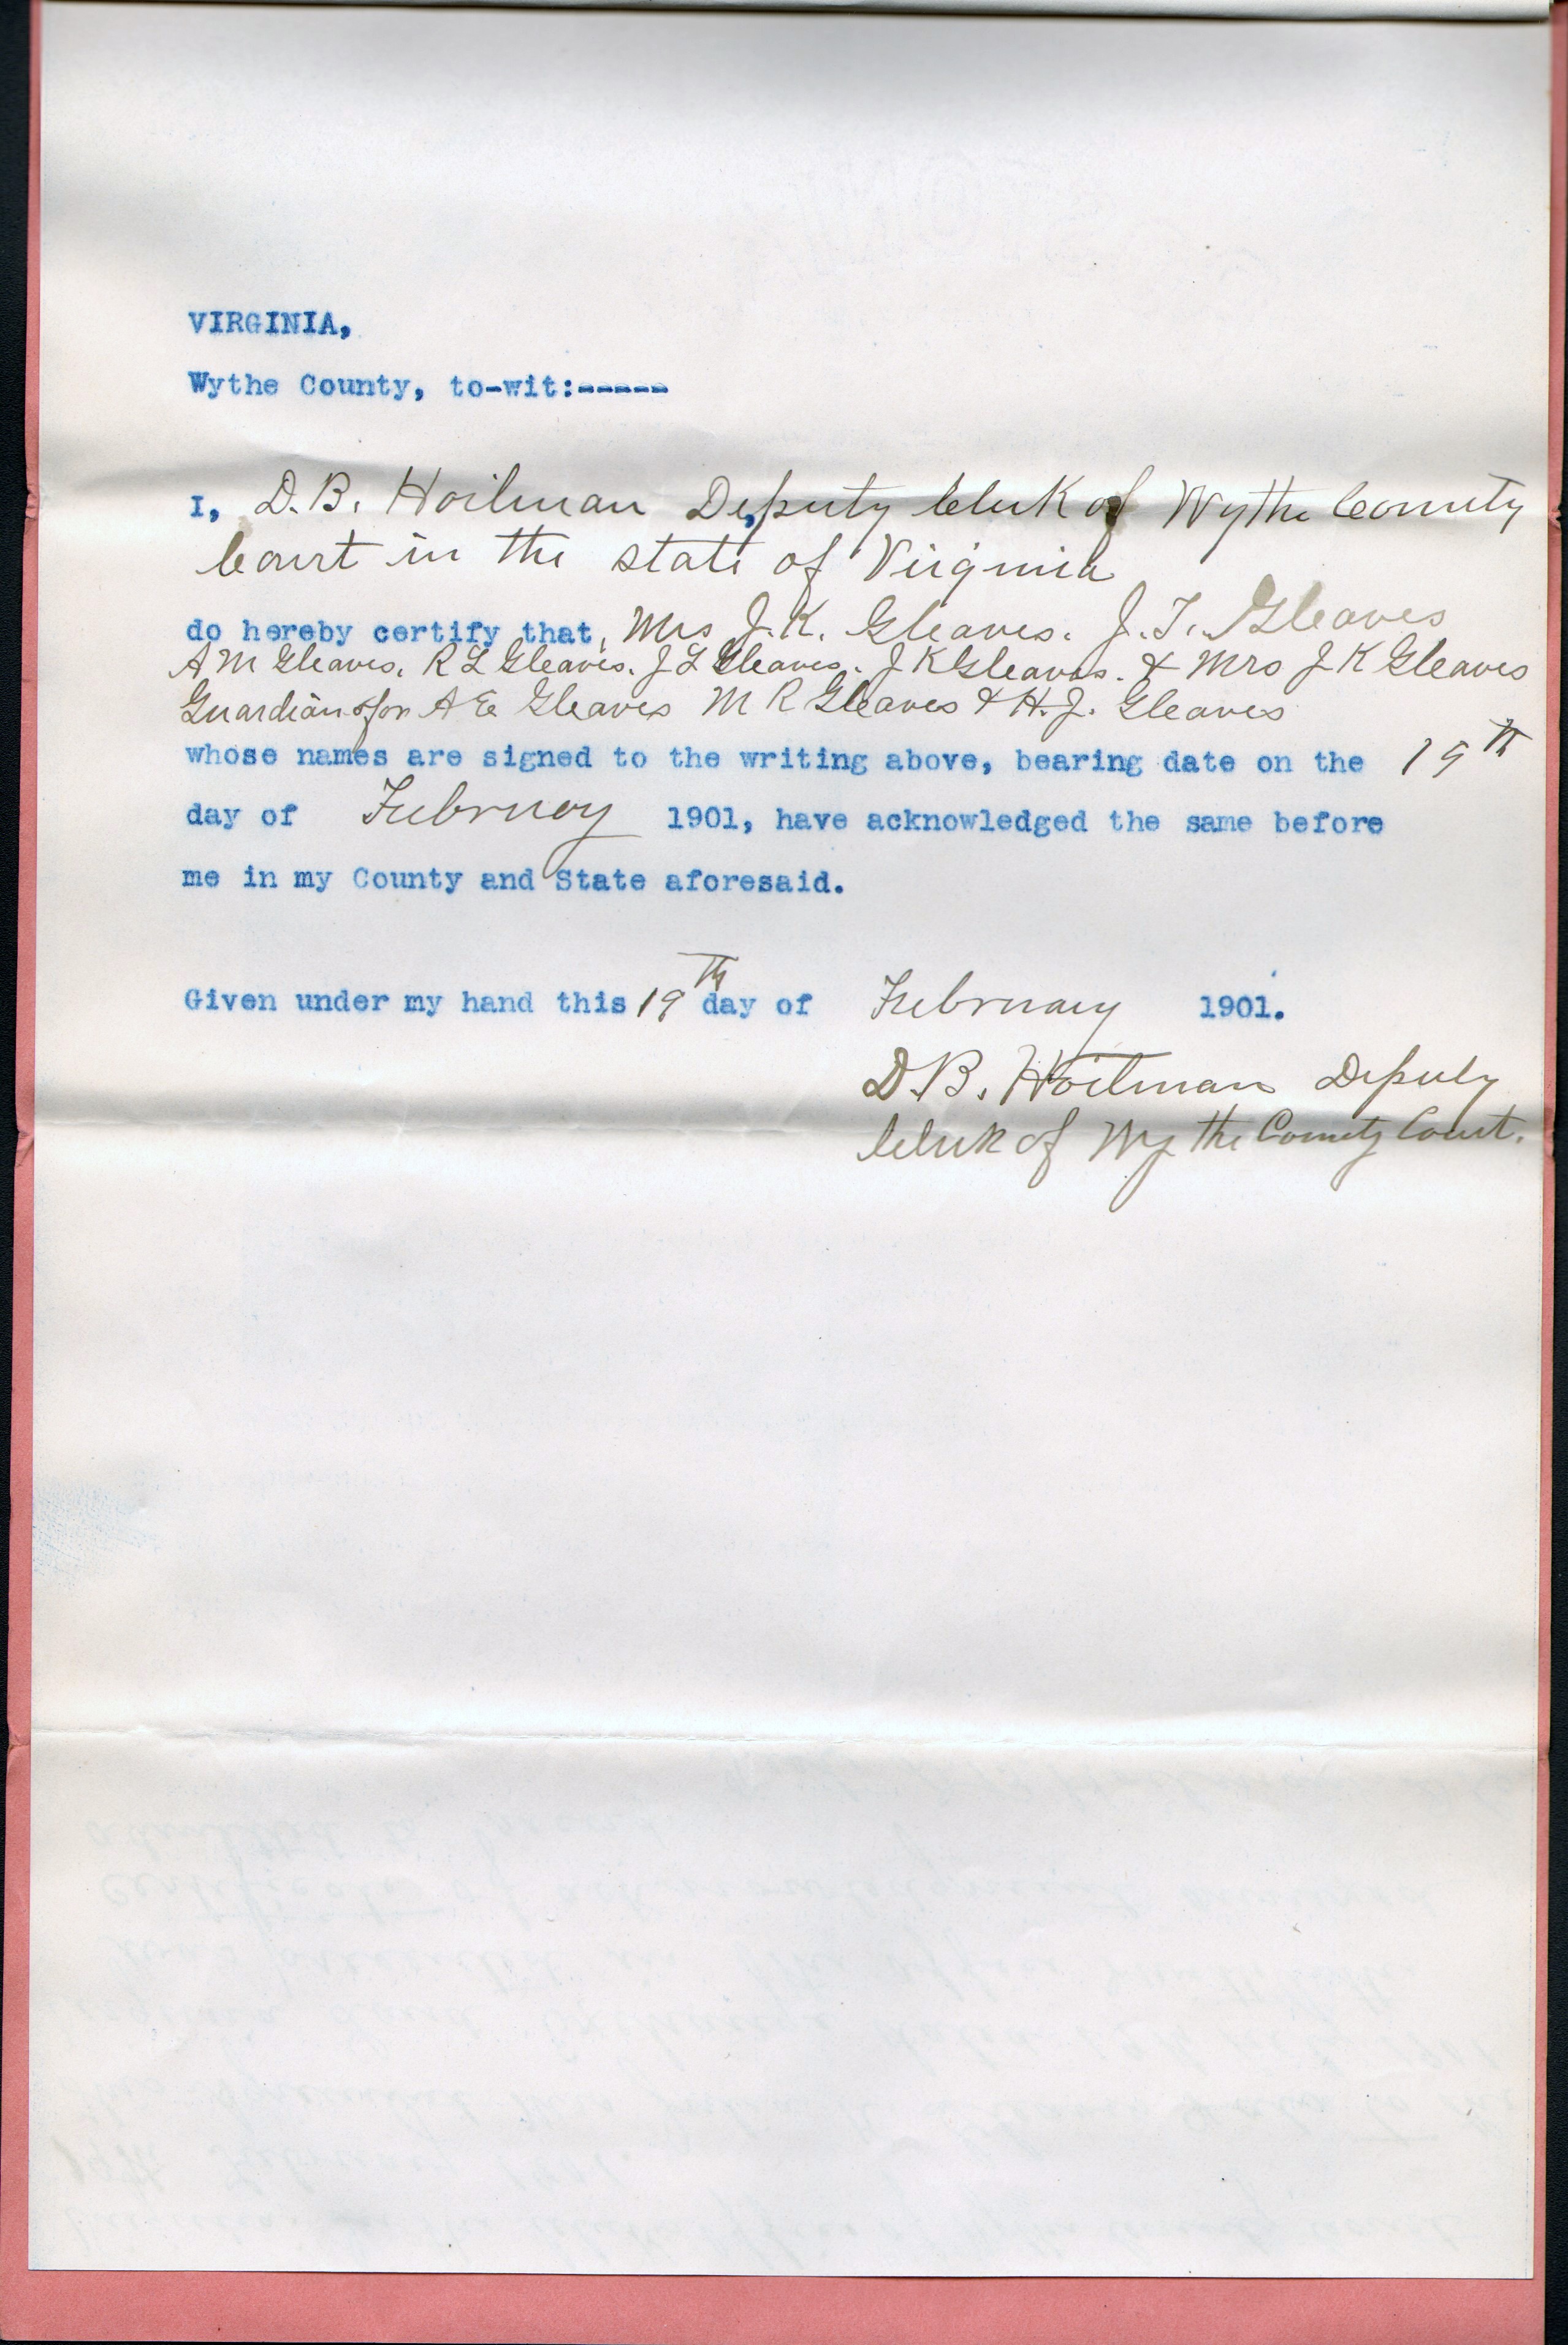 VIRGINIA,
Wythe County, to-wit:-----
I, D.B. Hoilman Deputy Clerk of Wythe County
Court in the state of Virginia
do hereby certify that, Mrs J.K. Gleaves. J.T. Gleaves
A M Gleaves. R L Gleaves. J L Gleaves. J K Gleaves. & Mrs J K Gleaves
Guardian for A E Gleaves M R Gleaves & H.J. Gleaves
whose names are signed to the writing above, bearing date on the 19th
day of February 1901, have acknowledged the same before
me in my County and State aforesaid.
Given under my hand this 19th day of February 1901.
D.B. Hoilman Deputy
Clerk of Wythe County Court.